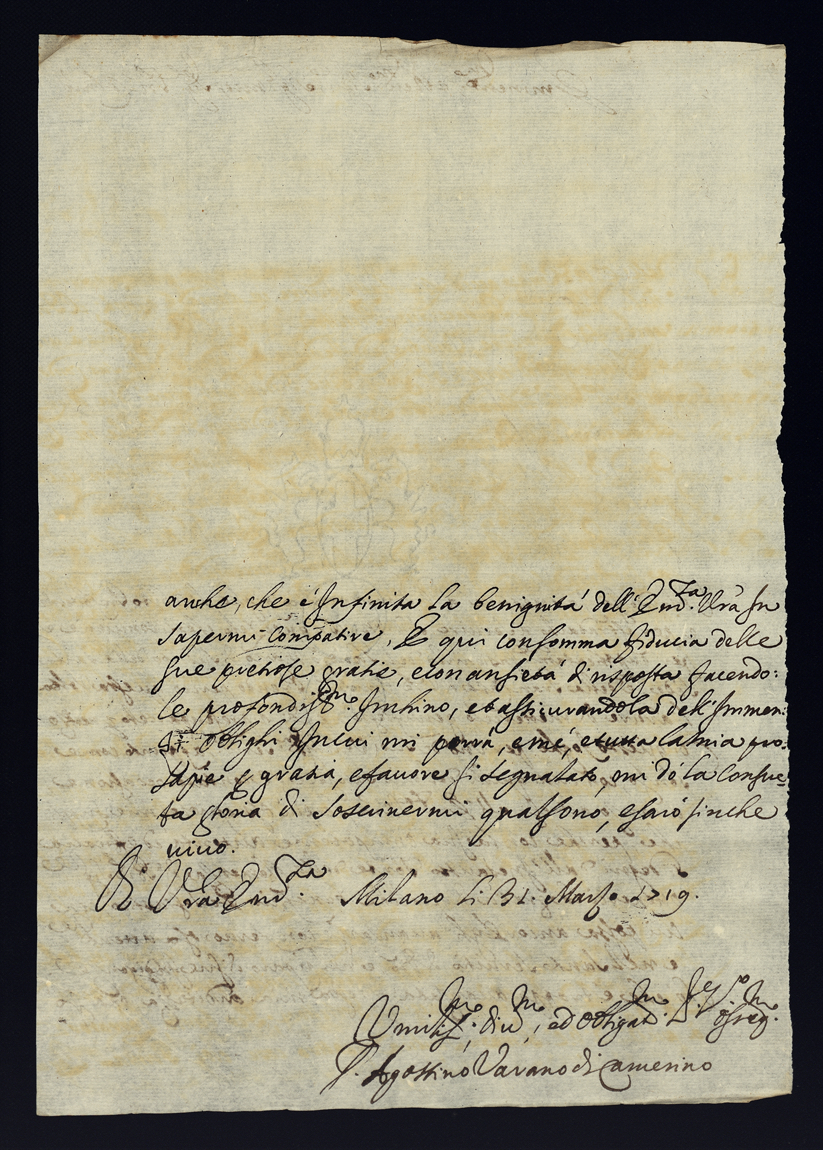 anche, che é Infinita la benignitá dell'Em.ᶻᵃ Vrã In
Sapermi Compative, E qui con somma fiducia delle
sue pietose gratie, e con ansietá di risposta facendo:
le profondis.ᵐᵒ Inchino, et assicurandola dell'Immen:
si oblighi in cui mi porrá, e mé, e tutta la mia pro:
sapie p gratia, e favore si segnalato, mi dó la Consue:
ta gloria di soscrivermi qual sono, e saró sin che
vivo.
D V̄ra Em.ᶻᵃ Milano Li 31. Marzo 1719.
Umilis.ᵐᵒ, div.ᵐᵒ, ed obligat.ᵐᵒ Ser.ʳᵉ osseq.ᵐᵒ
Agostino Varano di Camerino